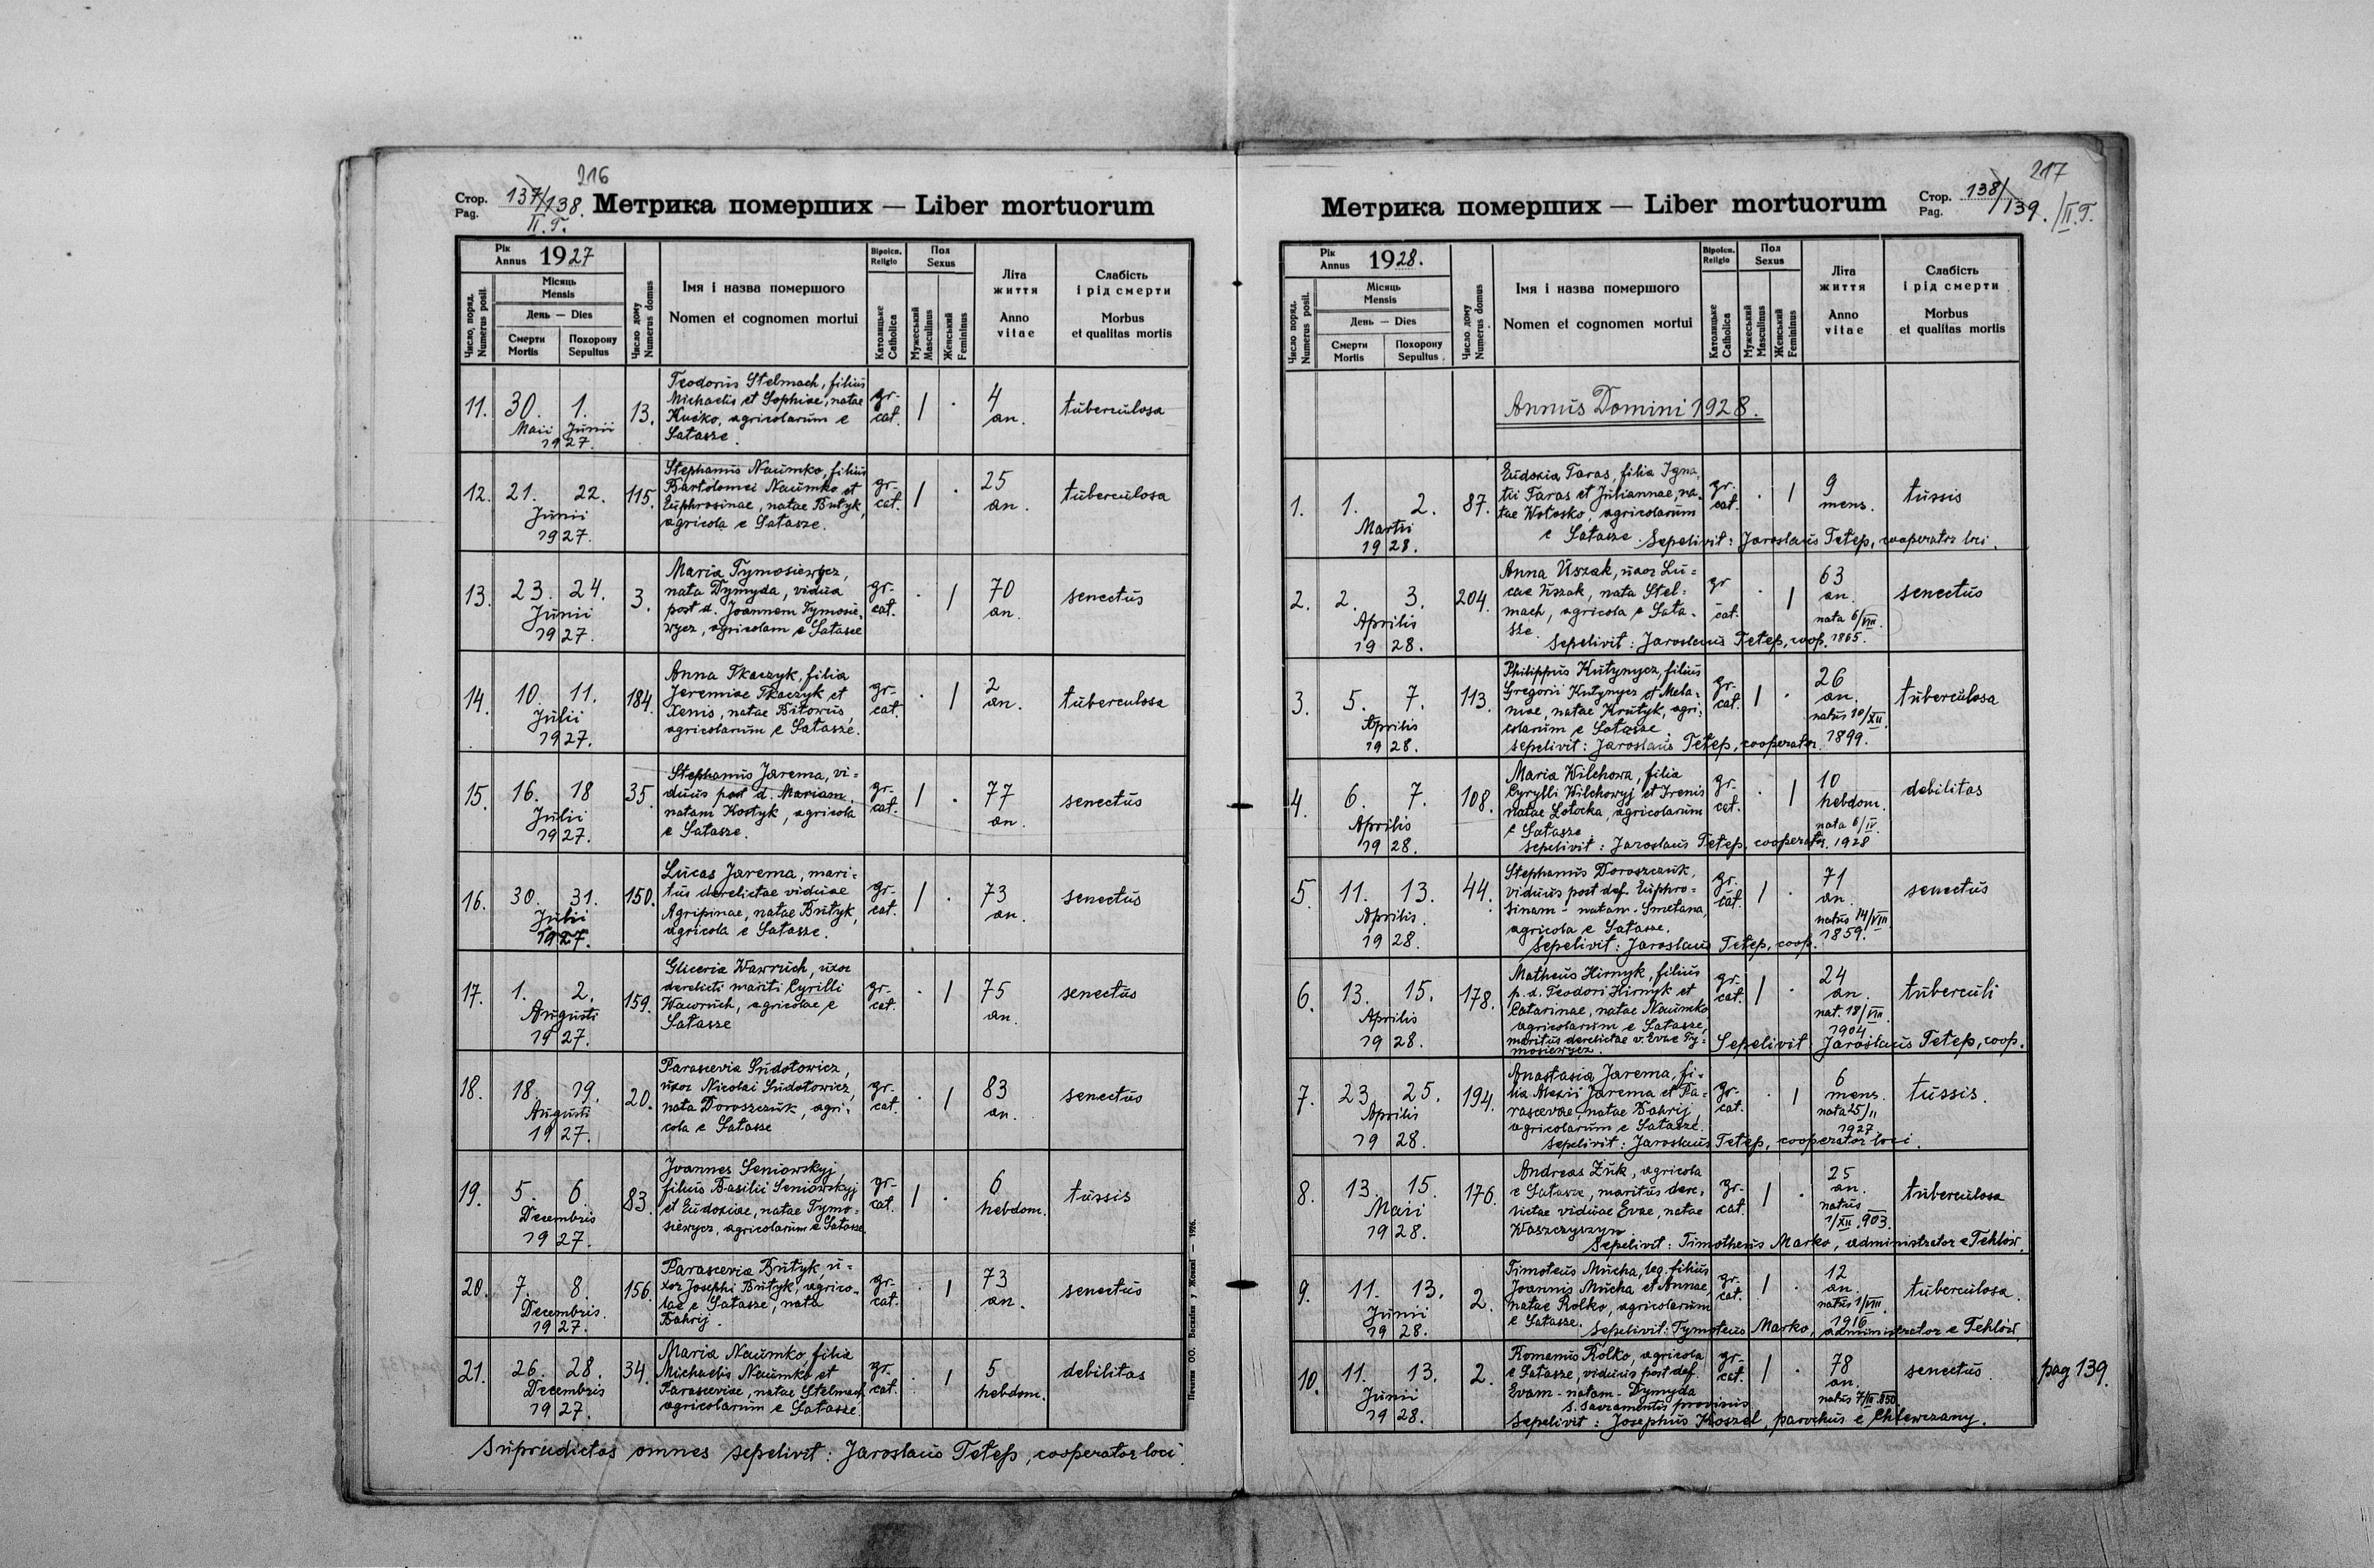 216
Стор. 137/138.
Pag. II. T.
Метрика померших — Liber mortuorum
Рік
Annus 1927
Місяць
Mensis
День — Dies
Число поряд.
Numerus posit.
Смерти
Mortis
Похорону
Sepultus
Число дому
Numerus domus
Імя і назва помершого
Nomen et cognomen mortui
Віроісп.
Religio
Католицьке
Catholica
Пол
Sexus
Мужеський
Masculinus
Женський
Femininus
Літа
життя
Anno
vitae
Слабість
і рід смерти
Morbus
et qualitas mortis
11. 30. Maii 1. Junii 1927. 13.
Teodorus Stelmach, filius
Michaelis et Sophiae, natae
Kućko, agricolarum e
Sałasze.
gr-cat. 1 · 4 an. tuberculosa
12. 21. 22. Junii 1927. 115.
Stephanus Naumko, filius
Bartolomei Naumko et
Euphrosinae, natae Butyk,
agricola e Sałasze.
gr-cat. 1 · 25 an. tuberculosa
13. 23. 24. Junii 1927. 3.
Maria Tymosiewycz,
nata Dymyda, vidua
post d. Joannem Tymosie-
wycz, agricolam e Sałasze
gr-cat. · 1 70 an. senectus
14. 10. 11. Julii 1927. 184.
Anna Tkaczyk, filia
Jeremiae Tkaczyk et
Xenis, natae Bitowus,
agricolarum e Sałasze.
gr-cat. · 1 2 an. tuberculosa
15. 16. 18 Julii 1927. 35.
Stephanus Jarema, vi-
duus post d. Mariam,
natam Kostyk, agricola
e Sałasze.
gr-cat. 1 · 77 an. senectus
16. 30. 31. Julii 1927. 150.
Lucas Jarema, mari-
tus derelictae viduae
Agripinae, natae Butyk,
agricola e Sałasze.
gr-cat. 1 · 73 an. senectus
17. 1. 2. Augusti 1927. 159.
Gliceria Wawruch, uxor
derelicti mariti Cyrilli
Wawruch, agricolae e
Sałasze
gr-cat. · 1 75 an. senectus
18. 18. 19. Augusti 1927. 20.
Parascevia Sudołowicz,
uxor Nicolai Sudołowicz,
nata Doroszczuk, agri-
cola e Sałasze
gr-cat. · 1 83 an. senectus
19. 5. 6. Decembris 1927. 83.
Joannes Seniowskyj,
filius Basilii Seniowskyj
et Eudoxiae, natae Tymo-
siewycz, agricolarum e Sałasze.
gr-cat. 1 · 6 hebdom. tussis
20. 7. 8. Decembris. 1927. 156.
Parascevia Butyk, u-
xor Josephi Butyk, agrico-
lae e Sałasze, nata
Bahrij.
gr-cat. · 1 73 an. senectus
21. 26. 28. Decembris 1927. 34.
Maria Naumko, filia
Michaelis Naumko et
Parasceviae, natae Stelmach,
agricolarum e Sałasze.
gr-cat. · 1 5 hebdom. debilitas
Supradictos omnes sepelivit: Jaroslaus Tetep, cooperator loci.
Печатня ОО. Василіян у Жовкві — 1926.
217
Метрика померших — Liber mortuorum
Стор. 138/139.
Pag. /II. T.
Рік
Annus 1928.
Місяць
Mensis
День — Dies
Число поряд.
Numerus posit.
Смерти
Mortis
Похорону
Sepultus
Число дому
Numerus domus
Імя і назва помершого
Nomen et cognomen mortui
Віроісп.
Religio
Католицьке
Catholica
Пол
Sexus
Мужеський
Masculinus
Женський
Femininus
Літа
життя
Anno
vitae
Слабість
і рід смерти
Morbus
et qualitas mortis
Annus Domini 1928.
1. 1. 2. Martii 1928. 87.
Eudoxia Taras, filia Igna-
tii Taras et Juliannae, na-
tae Wołosko, agricolarum
e Sałasze.
gr-cat. · 1 9 mens. tussis
Sepelivit: Jaroslaus Tetep, cooperator loci.
2. 2. 3. Aprilis 1928. 204.
Anna Uszak, uxor Lu-
cae Uszak, nata Stel-
mach, agricola e Sała-
sze.
gr cat. · 1 63 an. nata 6/VIII. 1865. senectus
Sepelivit: Jaroslaus Tetep, coop.
3. 5. 7. Aprilis 1928. 113.
Philippus Kutynycz, filius
Gregorii Kutynycz et Mela-
niae, natae Krutyk, agri-
colarum e Sałasze.
gr-cat. 1 · 26 an. natus 10/XII. 1899. tuberculosa
sepelivit: Jaroslaus Tetep, cooperator.
4. 6. 7. Aprilis 1928. 108.
Maria Wilchowa, filia
Cyrylli Wilchowyj et Irenis
natae Łotocka, agricolarum
e Sałasze.
gr-cat. · 1 10 hebdom. nata 6/IV. 1928 debilitas
sepelivit: Jaroslaus Tetep, cooperator.
5. 11. 13. Aprilis. 1928. 44.
Stephanus Doroszczuk,
viduus post def. Euphro-
sinam - natam - Smetana,
agricola e Sałasze.
gr-cat. 1 · 71 an. natus 14/VIII 1859. senectus
sepelivit: Jaroslaus Tetep, coop.
6. 13. 15. Aprilis 1928. 178.
Matheus Hirnyk, filius
p. d. Teodori Hirnyk et
Catarinae, natae Naumko
agricolarum e Sałasze,
maritus derelictae v. Evae Ty-
mosiewycz.
gr-cat. 1 · 24 an. nat. 18/VIII. 1904. tuberculi
Sepelivit Jaroslaus Tetep, coop.
7. 23. 25. Aprilis 1928. 194.
Anastasia Jarema, fi-
lia Alexii Jarema et Pa-
rascevae, natae Bahrij,
agricolarum e Sałasze.
gr-cat. · 1 6 mens. nata 25/11 1927. tussis.
sepelivit: Jaroslaus Tetep, cooperator loci.
8. 13. 15. Maii 1928. 176.
Andreas Żuk, agricola
e Sałasze, maritus dere-
lictae viduae Evae, natae
Waszczyszyn.
gr-cat. 1 · 25 an. natus 1/XII. 903. tuberculosa
Sepelivit: Timotheus Marko, administrator e Tehlów.
9. 11. 13. Junii 1928. 2.
Timoteus Mucha, leg. filius
Joannis Mucha et Annae
natae Rolko, agricolarum
e Sałasze.
gr-cat. 1 · 12 an. natus 1/VIII. 1916 tuberculosa.
Sepelivit: Tymoteus Marko, administrator e Tehlów.
10. 11. 13. Junii 1928. 2.
Romanus Rolko, agricola
e Sałasze, viduus post def.
Evam - natam - Dymyda
s. sacramentis provisus
gr-cat. 1 · 78 an. natus 850 senectus.
Sepelivit: Josephus Koszel, parochus e Chlewczany.
pag 139.